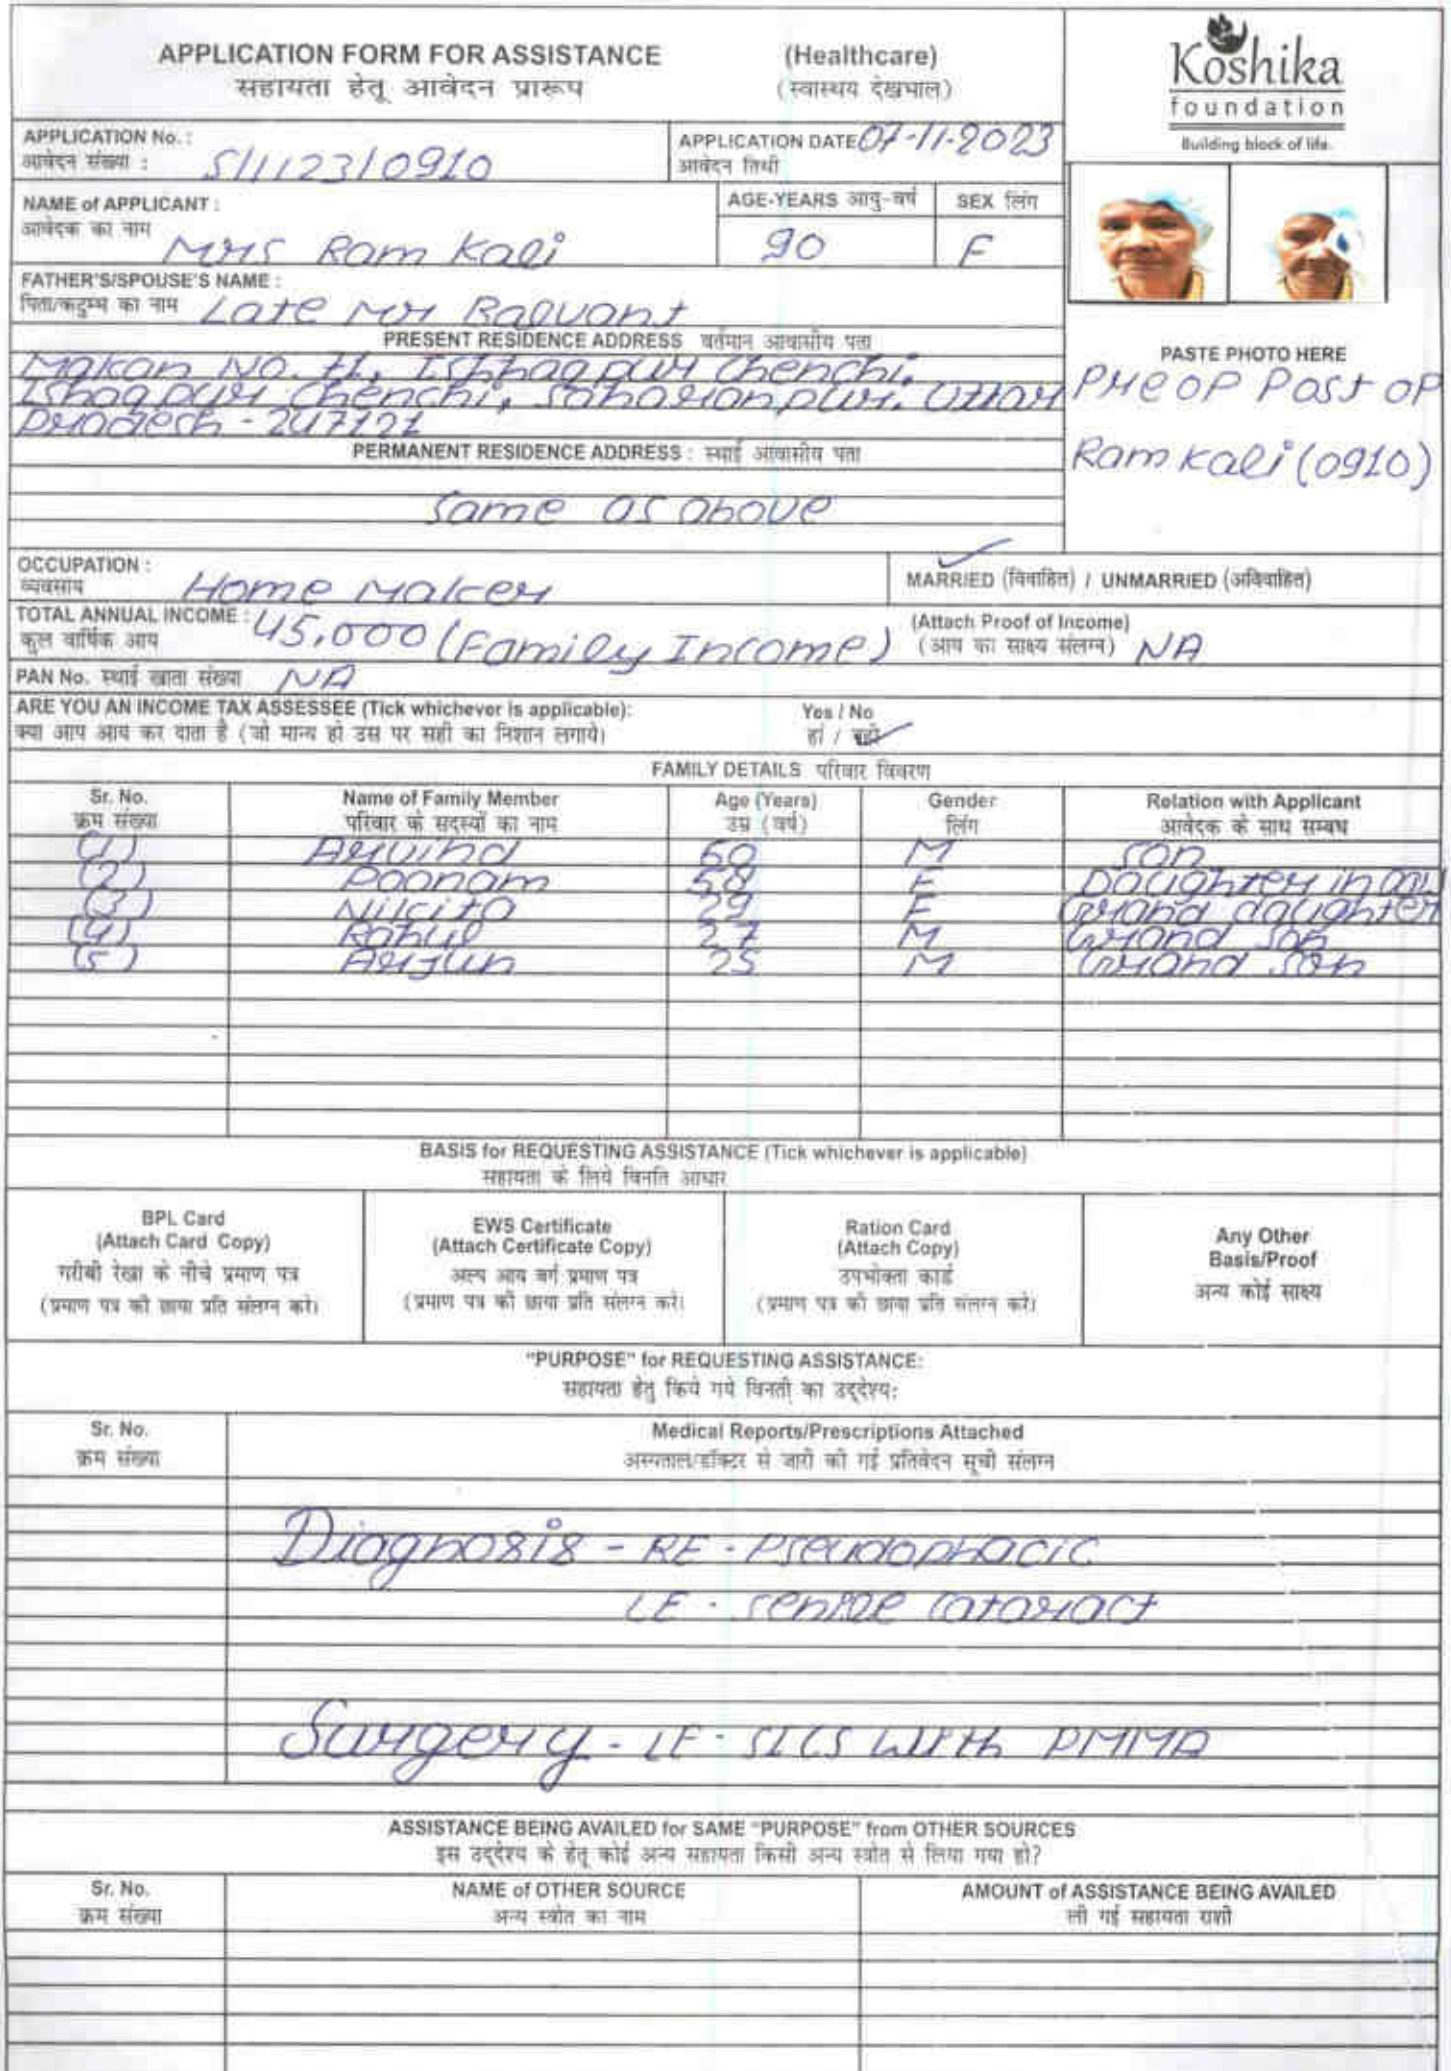 APPLICATION FORM FOR ASSISTANCE (Healthcare)
सहायता हेतू आवेदन प्रारूप (स्वास्थय देखभाल)
Koshika
foundation
Building block of life.
APPLICATION No. : S/1123/0910
आवेदन संख्या :
APPLICATION DATE 07-11-2023
आवेदन तिथी
NAME of APPLICANT : Mrs Ram Kali
आवेदक का नाम
AGE-YEARS आयु-वर्ष 90
SEX लिंग F
FATHER'S/SPOUSE'S NAME : Late Mr Balvant
पिता/कटुम्ब का नाम
PRESENT RESIDENCE ADDRESS वर्तमान आवासीय पता
Makan No. H, Ishhaqpur Chenchi,
Ishaqpur Chenchi, Saharanpur, Uttar
Pradesh - 247121
PERMANENT RESIDENCE ADDRESS : स्थाई आवासीय पता
Same as above
PASTE PHOTO HERE
Pre OP Post OP
Ram Kali (0910)
OCCUPATION : Home Maker
व्यवसाय
MARRIED (विवाहित) / UNMARRIED (अविवाहित)
TOTAL ANNUAL INCOME : 45,000 (Family Income)
कुल वार्षिक आय
(Attach Proof of Income)
(आय का साक्ष्य संलग्न) NA
PAN No. स्थाई खाता संख्या NA
ARE YOU AN INCOME TAX ASSESSEE (Tick whichever is applicable): Yes / No
क्या आप आय कर दाता है (जो मान्य हो उस पर सही का निशान लगाये। हां / नहीं
FAMILY DETAILS परिवार विवरण
Sr. No. Name of Family Member Age (Years) Gender Relation with Applicant
क्रम संख्या परिवार के सदस्यों का नाम उम्र (वर्ष) लिंग आवेदक के साथ सम्बध
(1) Arvind 60 M Son
(2) Poonam 58 F Daughter in law
(3) Nikita 29 F Grand daughter
(4) Rahul 27 M Grand Son
(5) Arjun 25 M Grand Son
BASIS for REQUESTING ASSISTANCE (Tick whichever is applicable)
सहायता के लिये विनति आधार
BPL Card
(Attach Card Copy)
गरीबी रेखा के नीचे प्रमाण पत्र
(प्रमाण पत्र की छाया प्रति संलग्न करे।
EWS Certificate
(Attach Certificate Copy)
अल्प आय वर्ग प्रमाण पत्र
(प्रमाण पत्र की छाया प्रति संलग्न करे।
Ration Card
(Attach Copy)
उपभोक्ता कार्ड
(प्रमाण पत्र की छाया प्रति संलग्न करे।
Any Other
Basis/Proof
अन्य कोई साक्ष्य
"PURPOSE" for REQUESTING ASSISTANCE:
सहायता हेतु किये गये विनती का उद्देश्य:
Sr. No. Medical Reports/Prescriptions Attached
क्रम संख्या अस्पताल/डॉक्टर से जारी की गई प्रतिवेदन सूची संलग्न
Diagnosis - RE - Pseudophacic
LE - Senile Cataract
Surgery - LE - SICS with PMMA
ASSISTANCE BEING AVAILED for SAME "PURPOSE" from OTHER SOURCES
इस उद्देश्य के हेतू कोई अन्य सहायता किसी अन्य स्त्रोत से लिया गया हो?
Sr. No. NAME of OTHER SOURCE AMOUNT of ASSISTANCE BEING AVAILED
क्रम संख्या अन्य स्त्रोत का नाम ली गई सहायता राशी